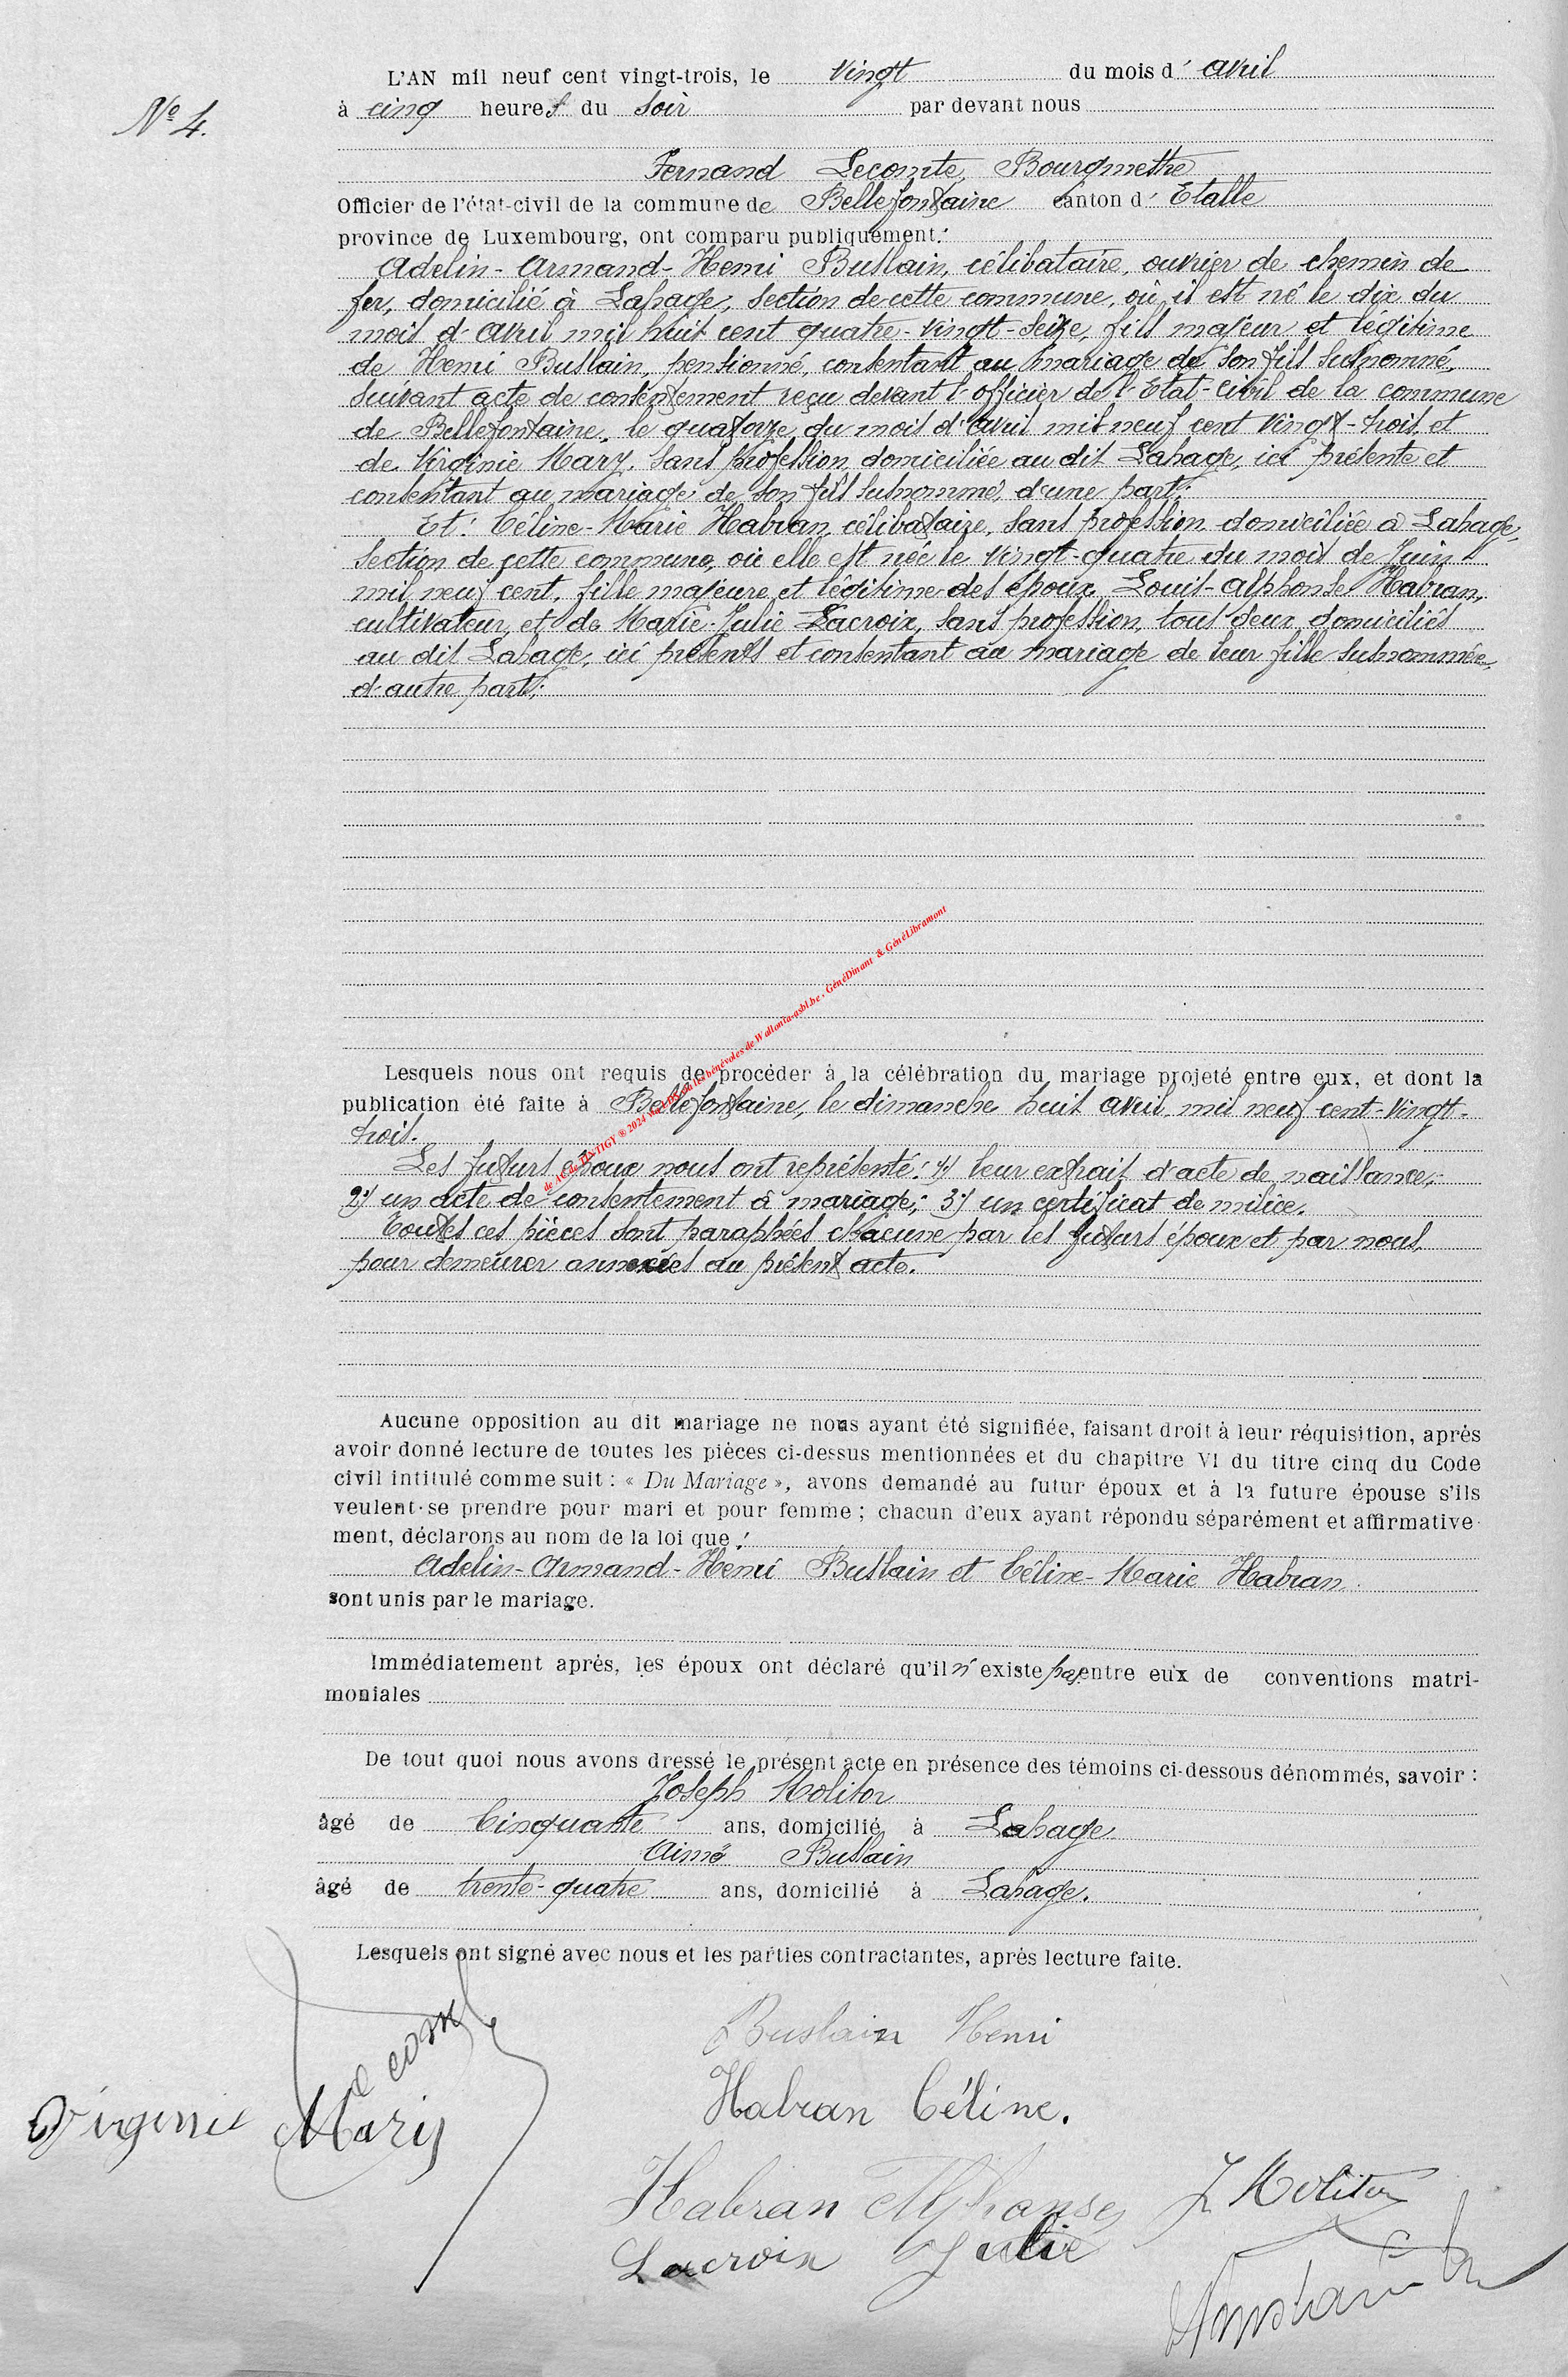 L'AN mil neuf cent vingt-trois, le vingt du mois d'avril
Nº 4.
à cinq heures du soir par devant nous
Fernand Lecomte, Bourgmestre
Officier de l'état-civil de la commune de Bellefontaine canton d'Etalle
province de Luxembourg, ont comparu publiquement:
Adelin-Armand-Henri Buslain, célibataire, ouvrier de chemin de
fer, domicilié à Lahage, section de cette commune, où il est né le dix du
mois d'avril mil huit cent quatre-vingt-seize, fils majeur et légitime
de Henri Buslain, pensionné, consentant au mariage de son fils susnommé,
suivant acte de consentement reçu devant l'officier de l'Etat-Civil de la commune
de Bellefontaine, le quatorze du mois d'avril mil neuf cent vingt-trois, et
de Virginie Mary, sans profession, domiciliée au dit Lahage, ici présente et
consentant au mariage de son fils susnommé, d'une part;
Et: Céline-Marie Habran, célibataire, sans profession, domiciliée à Lahage,
section de cette commune, où elle est née le vingt-quatre du mois de Juin
mil neuf cent, fille majeure et légitime des époux Louis-Alphonse Habran,
cultivateur, et de Marie-Julie Lacroix, sans profession, tous deux domiciliés
au dit Lahage, ici présents et consentant au mariage de leur fille susnommée,
d'autre part;
Lesquels nous ont requis de procéder à la célébration du mariage projeté entre eux, et dont la
publication été faite à Bellefontaine, le dimanche huit avril mil neuf cent-vingt-
trois.
Les futurs époux nous ont représenté: 1°/ leur extrait d'acte de naissance;
2°/ un acte de consentement à mariage; 3°/ un certificat de milice.
Toutes ces pièces sont paraphées chacune par les futurs époux et par nous,
pour demeurer annexées au présent acte.
de AC de TINTIGY ® 2024 les bénévoles de Wallonia-asbl.be, GénéDinant & GénéLibramont
Aucune opposition au dit mariage ne nous ayant été signifiée, faisant droit à leur réquisition, après
avoir donné lecture de toutes les pièces ci-dessus mentionnées et du chapitre VI du titre cinq du Code
civil intitulé comme suit : « Du Mariage », avons demandé au futur époux et à la future épouse s'ils
veulent se prendre pour mari et pour femme ; chacun d'eux ayant répondu séparément et affirmative-
ment, déclarons au nom de la loi que:
Adelin-Armand-Henri Buslain et Céline-Marie Habran
sont unis par le mariage.
Immédiatement après, les époux ont déclaré qu'il n'existe pas entre eux de conventions matri-
moniales
De tout quoi nous avons dressé le présent acte en présence des témoins ci-dessous dénommés, savoir :
Joseph Molitor
âgé de Cinquante ans, domicilié à Lahage
Aimé Buslain
âgé de trente-quatre ans, domicilié à Lahage.
Lesquels ont signé avec nous et les parties contractantes, après lecture faite.
Lecomte
Buslain Henri
Habran Céline.
Virginie Mary
Habran Alphonse J Molitor
Lacroix Julie